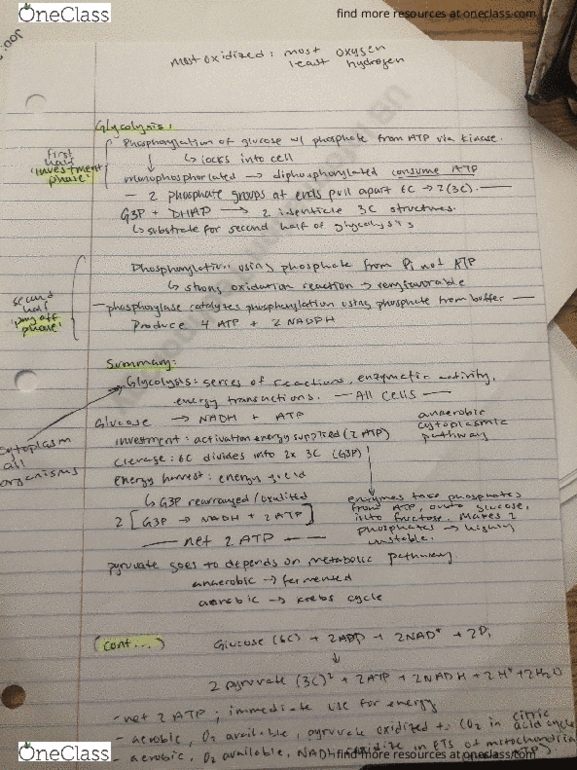 OneClass
find more resources at oneclass.com
most oxidized: most oxygen
least hydrogen
Glycolysis:
first half 'investment phase'
Phosphorylation of glucose w/ phosphate from ATP via kinase.
↳ locks into cell
monophosphorlated → diphosphorylated consume ATP
- 2 phosphate groups at ends pull apart 6C → 2(3C).
G3P + DHAP → 2 identicle 3C structures.
↳ substrate for second half of glycolysis
second half 'pay off phase'
Phosphorylation using phosphate from Pi not ATP
↳ strong oxidation reaction → very favorable
- phosphorylase catalyzes phosphorylation using phosphate from buffer -
Produce 4 ATP + 2 NADPH
Summary:
Glycolysis: series of reactions, enzymatic activity,
energy transactions. - All cells -
cytoplasm all organisms
Glucose → NADH + ATP
anaerobic cytoplasmic pathway
investment: activation energy supplied (2 ATP)
cleavage: 6C divides into 2x 3C (G3P)
energy harvest: energy yield
↳ G3P rearranged/oxidized
2 [G3P → NADH + 2 ATP]
- net 2 ATP -
enzymes take phosphates
from ATP, onto glucose,
into fructose. Makes 2
phosphates → highly
unstable.
pyruvate goes to depends on metabolic pathway
anaerobic → fermented
aerobic → krebs cycle
(cont...)
Glucose (6C) + 2ADP + 2NAD+ + 2Pi
↓
2 pyruvate (3C) + 2ATP + 2NADH + 2H+ + 2H2O
- net 2 ATP; immediate use for energy
- aerobic, O2 available, pyruvate oxidized to CO2 in citric acid cycle
- aerobic, O2 available, NADH oxidize in ETS of mitochondria
OneClass
find more resources at oneclass.com